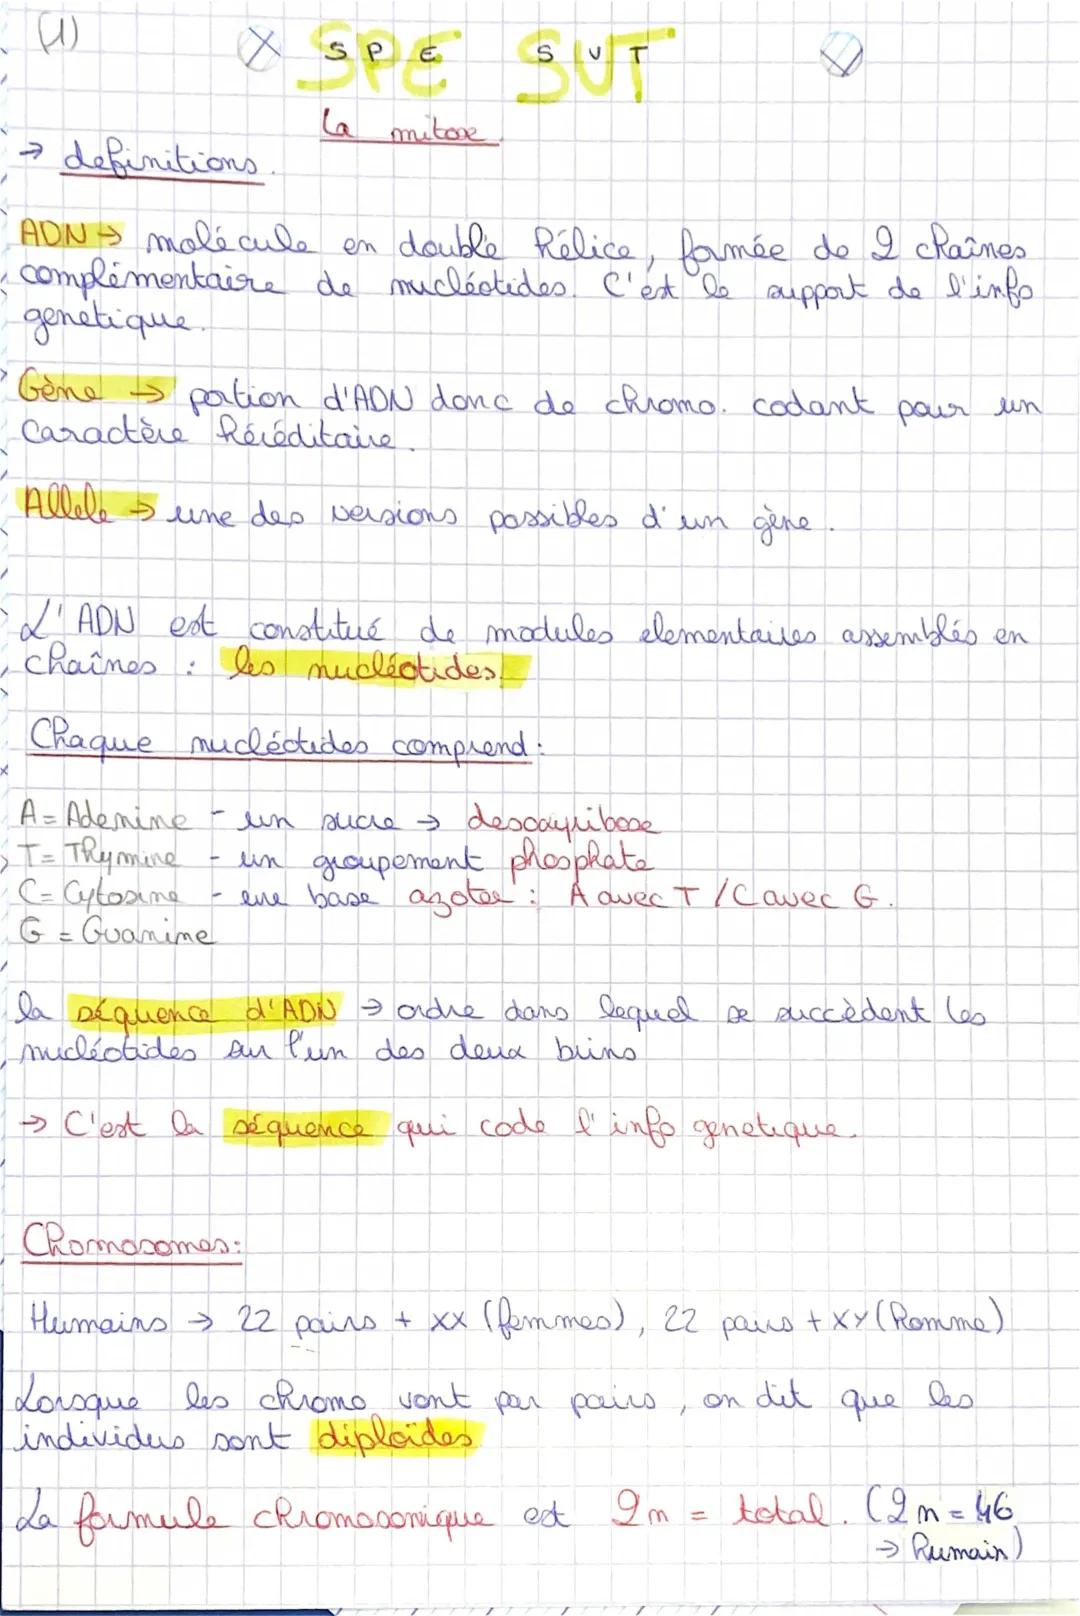 (1)
SPE SVT
La mitose.
→ definitions.
ADN → molécule en double hélice, formée de 2 chaînes
complémentaire de nucléotides. C'est le support de l'info
genetique.
Gène → portion d'ADN donc de chromo. codant pour un
caractère héréditaire.
Allele → une des versions possibles d'un gène.
L'ADN est constitué de modules elementaires assemblés en
chaînes : les nucléotides.
Chaque nucléotides comprend :
A = Adenine - un sucre → desoxyribose
T = Thymine - un groupement phosphate
C = Cytosine - une base azotee : A avec T / C avec G.
G = Guanine
la séquence d'ADN → ordre dans lequel se succèdent les
nucléotides sur l'un des deux brins
→ C'est la séquence qui code l'info genetique.
Chomosomes :
Humains → 22 pairs + XX (femmes), 22 pairs + XY (homme)
Lorsque les chromo vont par pairs, on dit que les
individus sont diploïdes
La formule chromosomique est 2n = total. (2n = 46
→ humain)